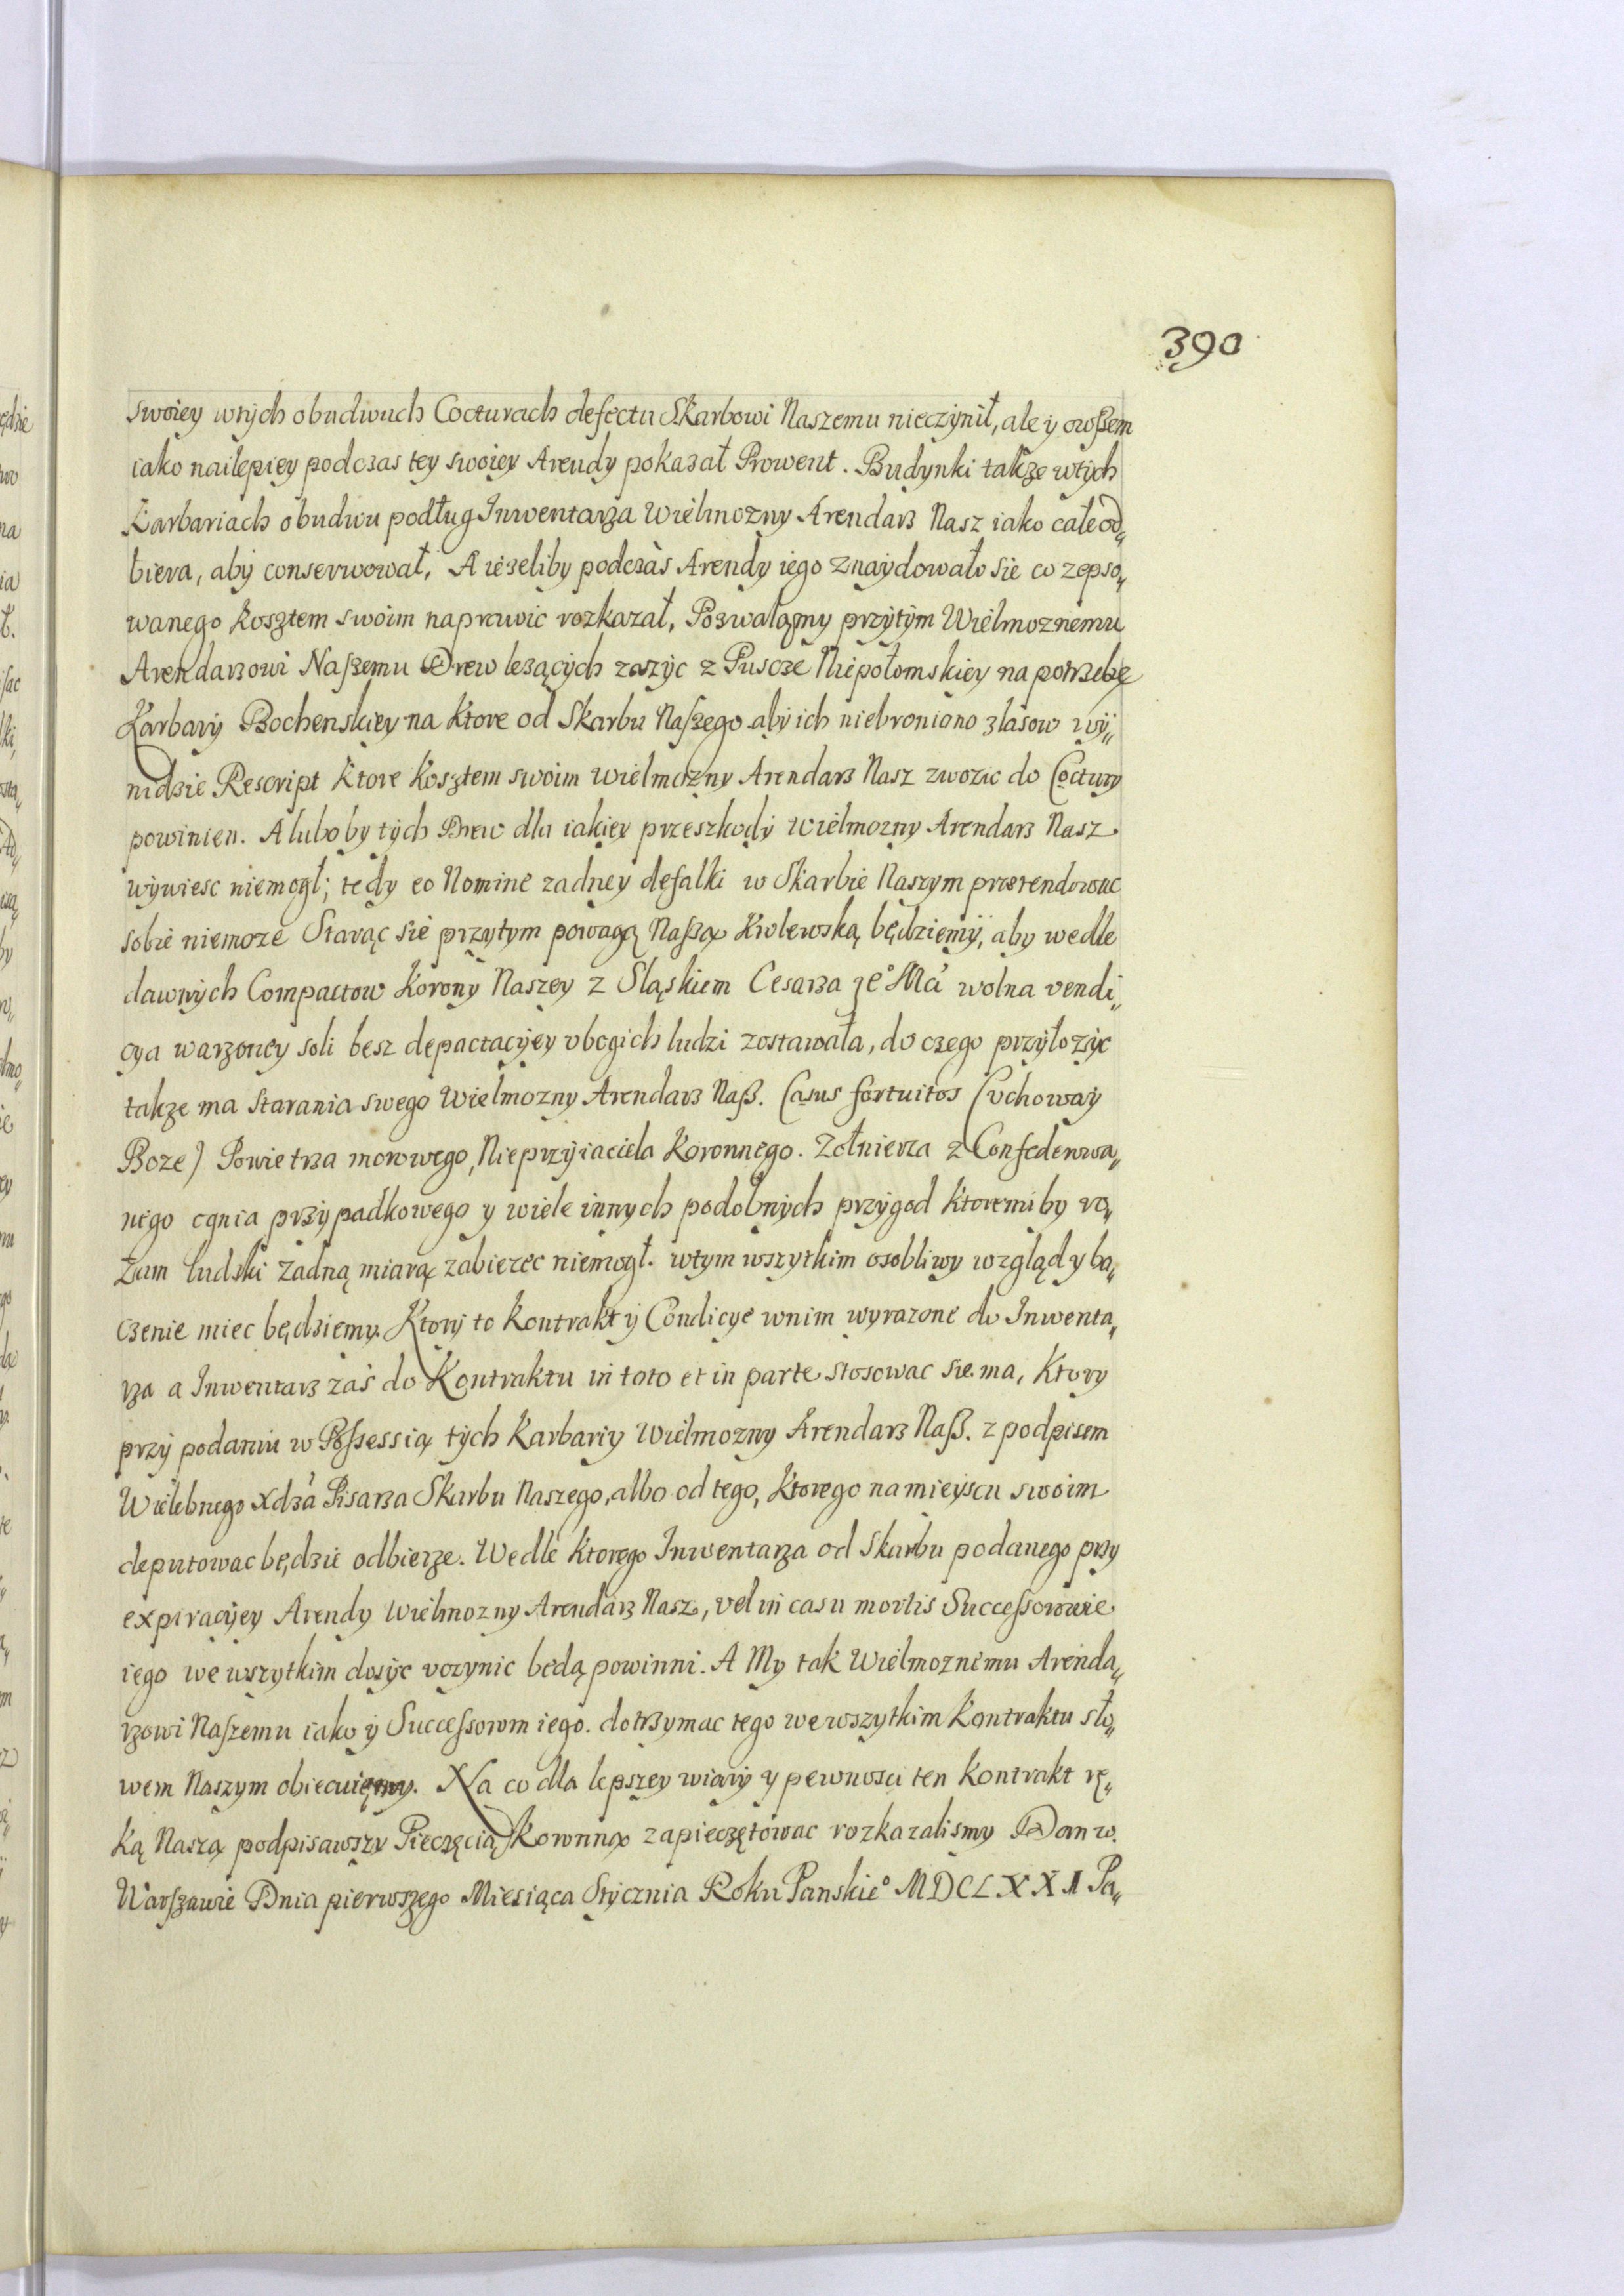 390
swoiey wtych obudwuch Cocturach defectu Skarbowi Naszemu nieczynił, ale y owszem
iako nailepiey podczas tey swoiey Arendy pokazał Prowent. Budynki takze wtych
Karbariach obudwu podług Inwentarza Wielmozny Arendarz Nasz iako całe od„
biera, aby conserwował, A iezeliby podczas Arendy iego znaydowało sie co zepso„
wanego kosztem swoim naprawic rozkazał, Pozwalamy przytym Wielmoznemu
Arendarzowi Naszemu Drew lezących zazyc z Puscze Niepołomskiey na potrzebę
Karbary Bochenskiey na ktore od Skarbu Naszego aby ich niebroniono zlasow wy„
nidzie Rescript ktore kosztem swoim Wielmozny Arendarz Nasz zwozic do Coctury
powinien. A luboby tych Drew dla iakiey przeszkody Wielmozny Arendarz Nasz
wywiesc niemogł; tedy eo Nomine zadney defalki w Skarbie Naszym prætendowac
sobie niemoze Starąc sie przytym powagą Naszą Krolewską będziemy, aby wedle
dawnych Compactow Korony Naszey z Sląskiem Cesarza Je° Mci wolna vendi„
cya warzoney soli besz depactacyey vbogich ludzi zostawała, do czego przyłozyc
takze ma starania swego Wielmozny Arendarz Nasz. Casus fortuitos (vchoway
Boze) Powietrza morowego, Nieprzyiaciela Koronnego. Zołnierza z Confederowa„
nego ognia przypadkowego y wiele innych podobnych przygod ktoremiby ro„
zum ludzki zadną miarą zabiezec niemogł. wtym wszytkim osobliwy wzgląd y ba„
czenie miec będziemy. Ktory to Kontrakt y Condicye wnim wyrazone do Inwenta„
rza a Inwentarz zaś do Kontraktu in toto et in parte stosowac sie ma, Ktory
przy podaniu w Possessią tych Karbariy Wielmozny Arendarz Nasz. z podpisem
Wielebnego Xdza Pisarza Skarbu Naszego, albo od tego, ktorego na mieyscu swoim
deputowac będzie odbierze. Wedle ktorego Inwentarza od Skarbu podanego przy
expiracyey Arendy Wielmozny Arendarz Nasz, vel in casu mortis Successorowie
iego we wszytkim dosyc vczynic będą powinni. A My tak Wielmoznemu Arenda„
rzowi Naszemu iako y Successorom iego. dotrzymac tego we wszytkim Kontraktu sło„
wem Naszym obiecuięmy. Na co dla lepszey wiary y pewnosci ten Kontrakt rę„
ką Naszą podpisawszy Pieczęcią Koronną zapieczętowac rozkazalismy Dan w.
Warszawie Dnia pierwszego Miesiąca Stycznia Roku Panskie° MDCLXXII Pa„